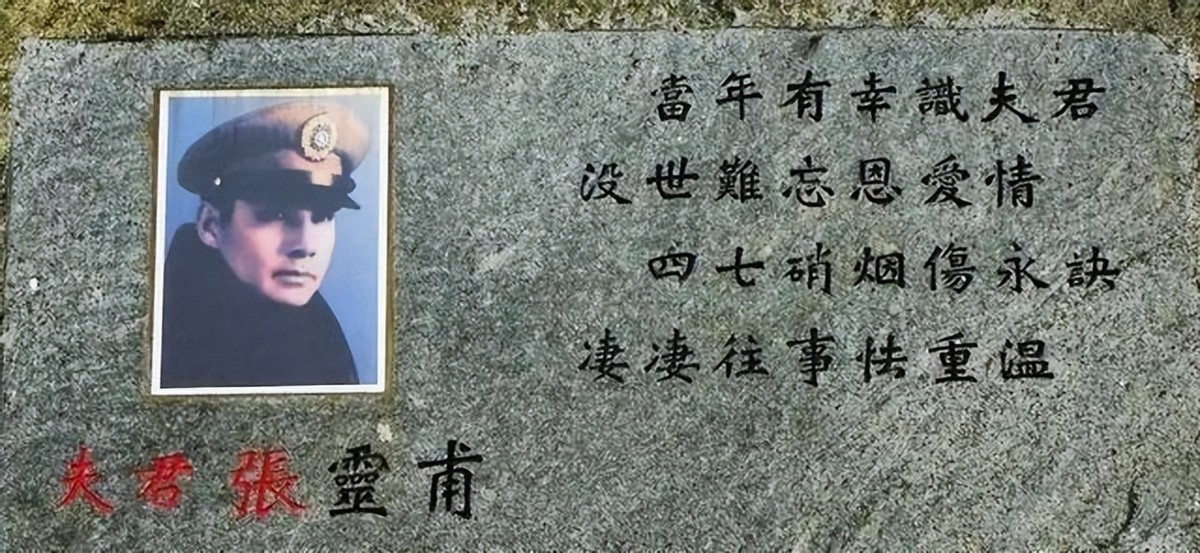 當年有幸識夫君
没世難忘恩愛情
四七硝烟傷永訣
凄凄往事怯重温
夫君張靈甫